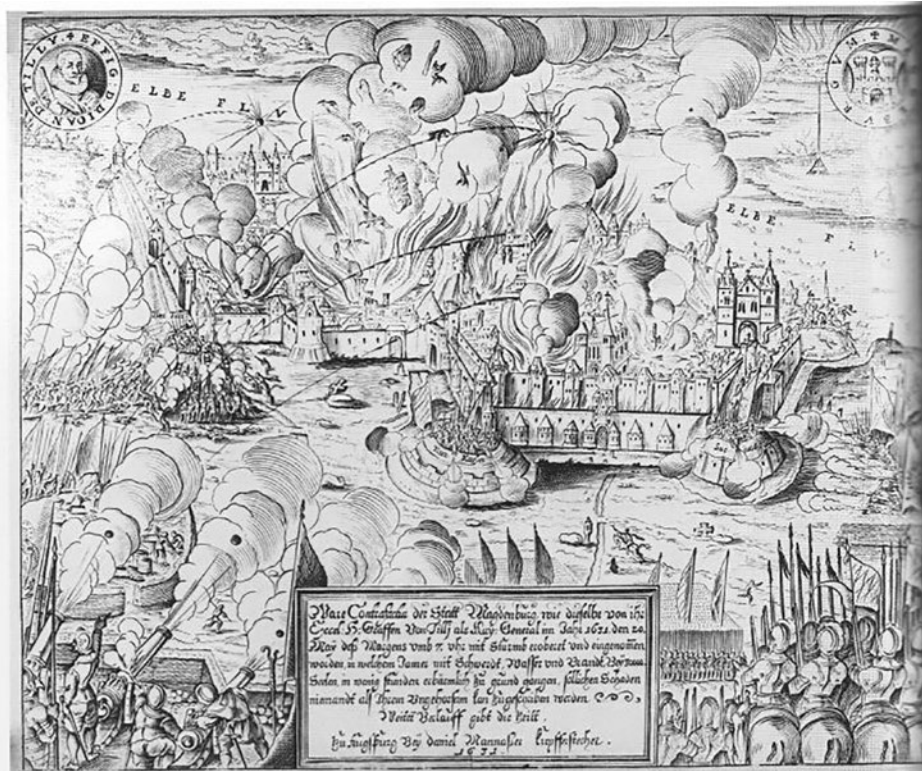 EFFIG. D. D. IOAN DE TILLY. ✠
ELBE FLV
M
BVRGVM. ✠
ELBE
F.
Ware Contrafactur der Statt Magdenburg wie dieselbe von ihr
Excel. H. Graffen von Tilli als Kay. General im Jahr 1631. den 20.
May deß Morgens umb 7. uhr mit Sturmb erobert und eingenomen
worden, in welchem Jamer mit Schwerdt, Wasser und Brandt, Bey
Seelen, in wenig stunden erbärmlich zu grund gangen, sollichen Schaden
niemandt als Ihrem Ungehorsam kan zugeschriben werden
Weitter Verlauff gibt die Zeitt.
Zu Augspurg Bey Daniel Mannasser kupfferstecher.
1631.